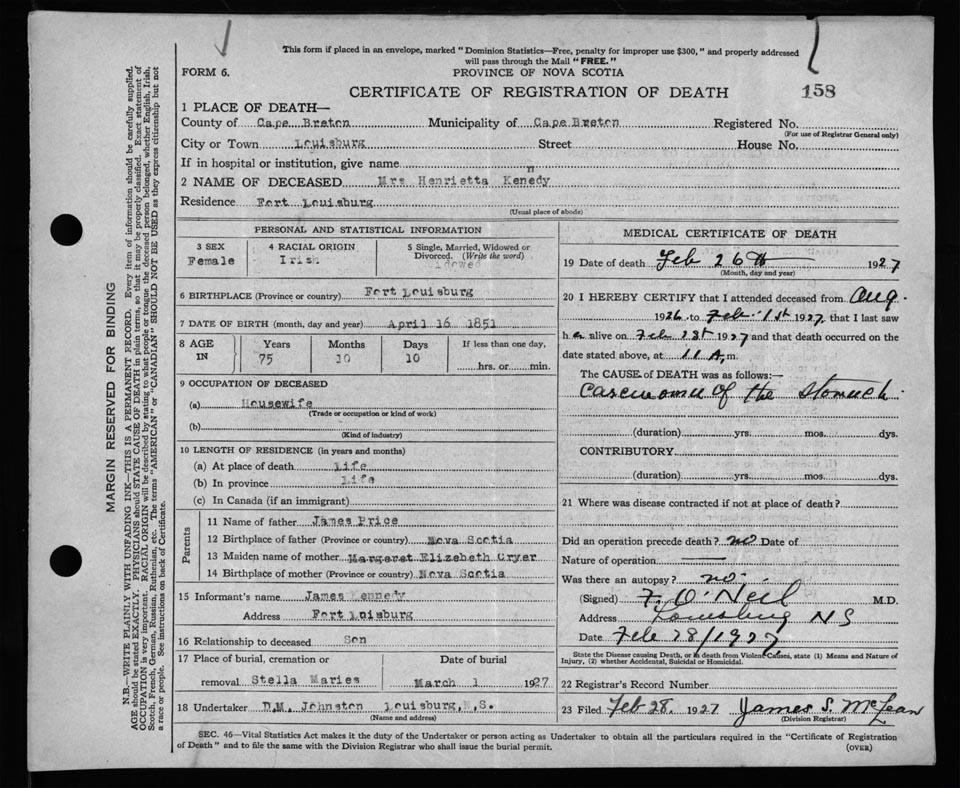 This form if placed in an envelope, marked "Dominion Statistics—Free, penalty for improper use $300," and properly addressed
will pass through the Mail "FREE."
FORM 6.
PROVINCE OF NOVA SCOTIA
CERTIFICATE OF REGISTRATION OF DEATH
158
1 PLACE OF DEATH—
County of Cape Breton Municipality of Cape Breton Registered No.
(For use of Registrar General only)
City or Town Louisburg Street House No.
If in hospital or institution, give name
n
2 NAME OF DECEASED Mrs Henrietta Kenedy
Residence Fort Louisburg
(Usual place of abode)
PERSONAL AND STATISTICAL INFORMATION
3 SEX
Female
4 RACIAL ORIGIN
Irish
5 Single, Married, Widowed or
Divorced. (Write the word)
idowed
6 BIRTHPLACE (Province or country) Fort Louisburg
7 DATE OF BIRTH (month, day and year) April 16 1851
8 AGE
IN
Years
75
Months
10
Days
10
If less than one day,
hrs. or min.
9 OCCUPATION OF DECEASED
(a) Housewife
(Trade or occupation or kind of work)
(b)
(Kind of industry)
10 LENGTH OF RESIDENCE (in years and months)
(a) At place of death Life
(b) In province Life
(c) In Canada (if an immigrant)
Parents
11 Name of father James Price
12 Birthplace of father (Province or country) Nova Scotia
13 Maiden name of mother Margaret Elizebeth Cryer
14 Birthplace of mother (Province or country) Nova Scotia
15 Informant's name James Kennedy
Address Fort Luisburg
16 Relationship to deceased Son
17 Place of burial, cremation or
removal Stella Maries
Date of burial
March 1 1927
18 Undertaker D.M. Johnston Louisburg, N.S.
(Name and address)
MEDICAL CERTIFICATE OF DEATH
19 Date of death Feb 26th 1927
(Month, day and year)
20 I HEREBY CERTIFY that I attended deceased from Aug.
1926 to Feb. 1st 1927, that I last saw
h er alive on Feb 23st 1927 and that death occurred on the
date stated above, at 11 A.m.
The CAUSE of DEATH was as follows:—
Carcinoma of the Stomach
(duration) yrs. mos. dys.
CONTRIBUTORY
(duration) yrs. mos. dys.
21 Where was disease contracted if not at place of death?
Did an operation precede death? no Date of
Nature of operation
Was there an autopsy? no.
(Signed) F. O'Neil M.D.
Address Louisburg N S
Date Feb 28/1927
State the Disease causing Death, or in death from Violent Causes, state (1) Means and Nature of
Injury, (2) whether Accidental, Suicidal or Homicidal.
22 Registrar's Record Number
23 Filed Feb 28. 1927 James S. McLean
(Division Registrar)
SEC. 46—Vital Statistics Act makes it the duty of the Undertaker or person acting as Undertaker to obtain all the particulars required in the "Certificate of Registration
of Death" and to file the same with the Division Registrar who shall issue the burial permit.
(OVER)
MARGIN RESERVED FOR BINDING
N.B.—WRITE PLAINLY WITH UNFADING INK—THIS IS A PERMANENT RECORD. Every item of information should be carefully supplied.
AGE should be stated EXACTLY. PHYSICIANS should STATE CAUSE OF DEATH in plain terms, so that it may be properly classified. Exact statement of
OCCUPATION is very important. RACIAL ORIGIN will be described by stating to what people or tongue the deceased person belonged, whether English, Irish,
Scotch, French, German, Russian, Ruthenian, etc. The terms "AMERICAN" or "CANADIAN" SHOULD NOT BE USED as they express citizenship but not
a race or people. See instructions on back of Certificate.